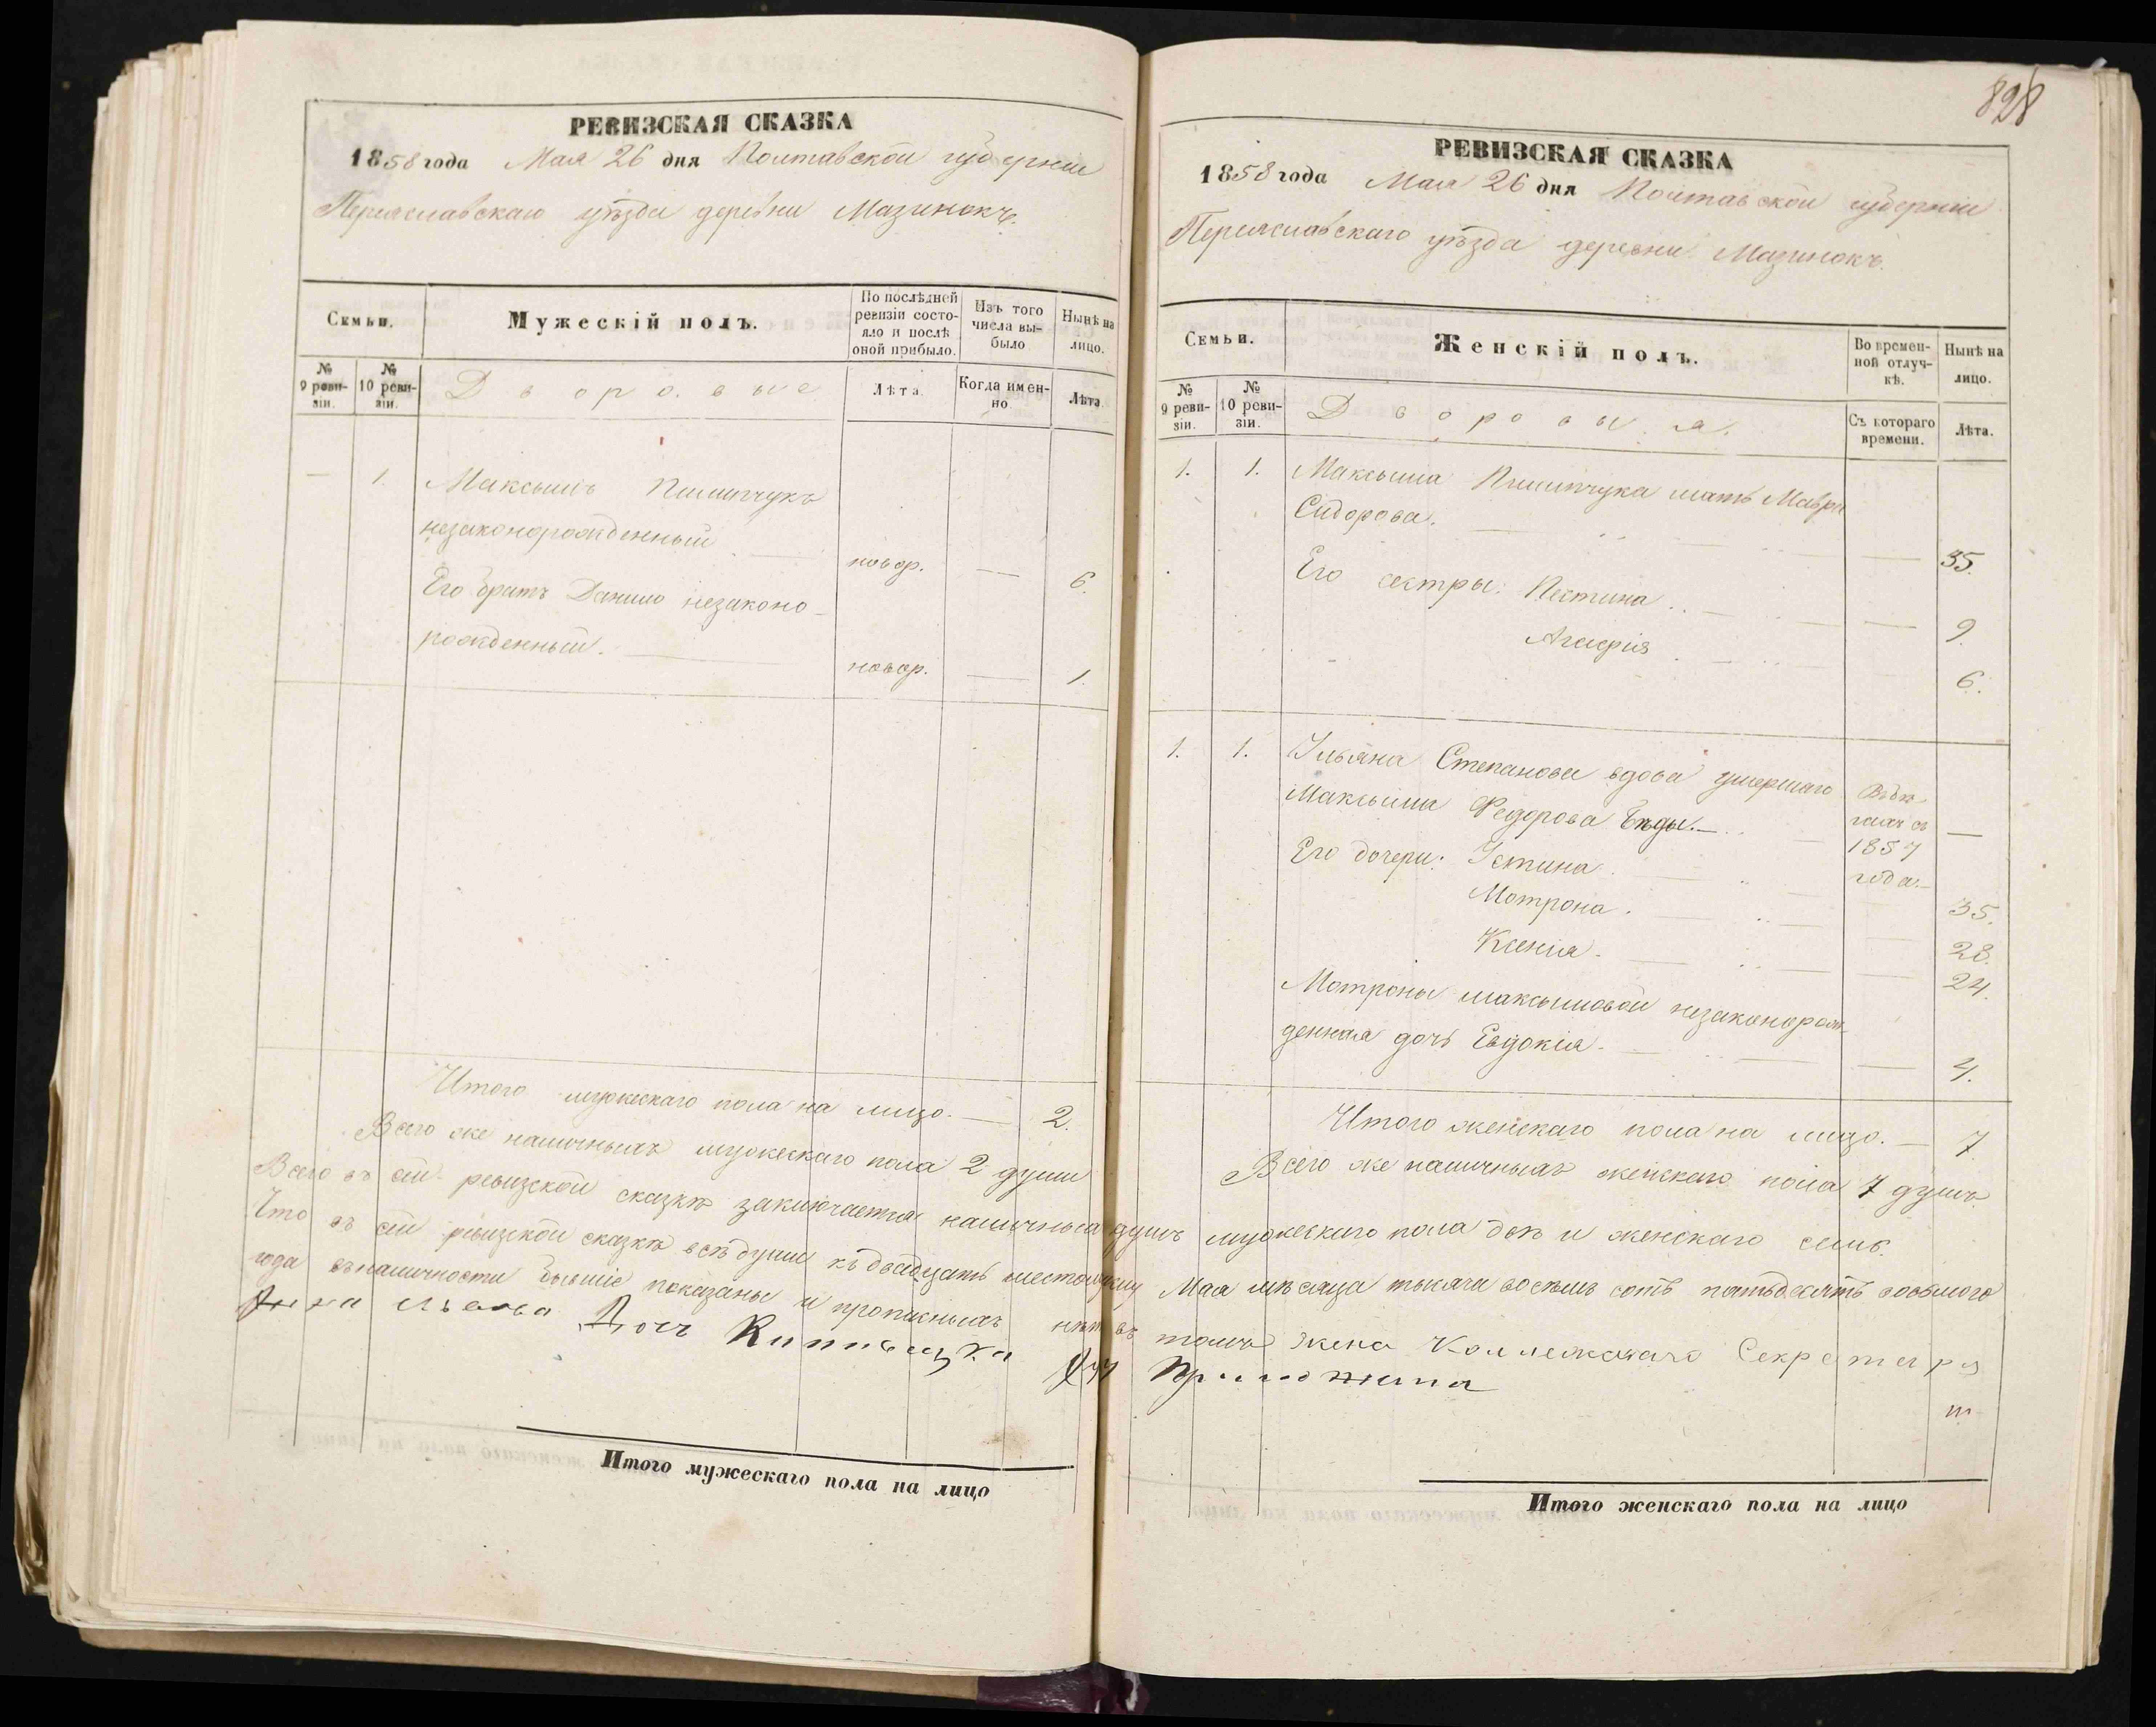 РЕВИЗСКАЯ СКАЗКА
1858 года Мая 26 дня Полтавской губерніи
Переяславскаго уѣзда деревни Мазинокъ.
Семьи.
Мужескій полъ.
По послѣдней ревизіи состояло и послѣ оной прибыло.
Изъ того числа выбыло
Нынѣ на лицо.
№ 9 ревизіи.
№ 10 ревизіи.
Дворовые
Лѣта
Когда именно
Лѣта
— 1. Максымъ Пилипчукъ
незаконорожденный
новор. — 6.
Его братъ Данило незаконо-
рожденный.
новор. — 1.
Итого мужескаго пола на лицо. — 2.
Всего же наличныхъ мужескаго пола 2 души
828
РЕВИЗСКАЯ СКАЗКА
1858 года Мая 26 дня Полтавской губерніи
Переяславскаго уѣзда деревни Мазинокъ.
Семьи.
Женскій полъ.
Во временной отлучкѣ.
Нынѣ на лицо.
№ 9 ревизіи.
№ 10 ревизіи.
Дворовыя.
Съ котораго времени.
Лѣта.
1. 1. Максыма Пилипчука мать Мавра
Сидорова. — 35.
Его сестры: Пестина — 9.
Агафія 6.
1. 1. Ульяна Степанова вдова умершаго
Максыма Федорова Бѣды. —
Въ бѣгахъ съ 1857 года. —
Его дочери: Устина 35.
Мотрона 28.
Ксенія 24.
Мотроны Максымовой незаконорож-
денная дочь Евдокія — 4.
Итого женскаго пола на лицо. — 7
Всего же наличныхъ женскаго пола 7 душъ
Всего въ сей ревизской сказкѣ заключается наличныхъ душъ мужескаго пола двѣ и женскаго семь.
Что въ сей ревизской сказкѣ всѣ души къ двадцать шестому Мая мѣсяца тысяча восемь сотъ пятьдесятъ восьмого
года въ наличности бывшіе показаны и прописныхъ нѣтъ въ томъ жена Коллежскаго Секретаря
Анна Львова Дочь
Приложила
Итого мужескаго пола на лицо
Итого женскаго пола на лицо